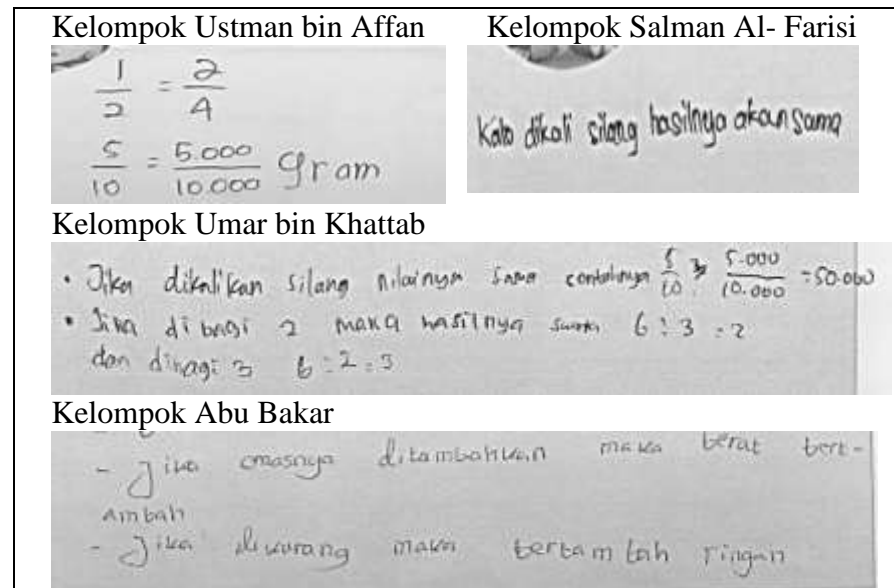 Kelompok Ustman bin Affan
1/2 = 2/4
5/10 = 5.000/10.000 gram
Kelompok Salman Al- Farisi
Kalo dikali silang hasilnya akan sama
Kelompok Umar bin Khattab
• Jika dikalikan silang nilainya sama contohnya 5/10 5.000/10.000 = 50.000
• Jika di bagi 2 maka hasilnya 6 : 3 = 2
dan dibagi 3 6 : 2 = 3
Kelompok Abu Bakar
- Jika emasnya ditambahkan maka berat bert-
ambah
- Jika dikurang maka bertambah ringan